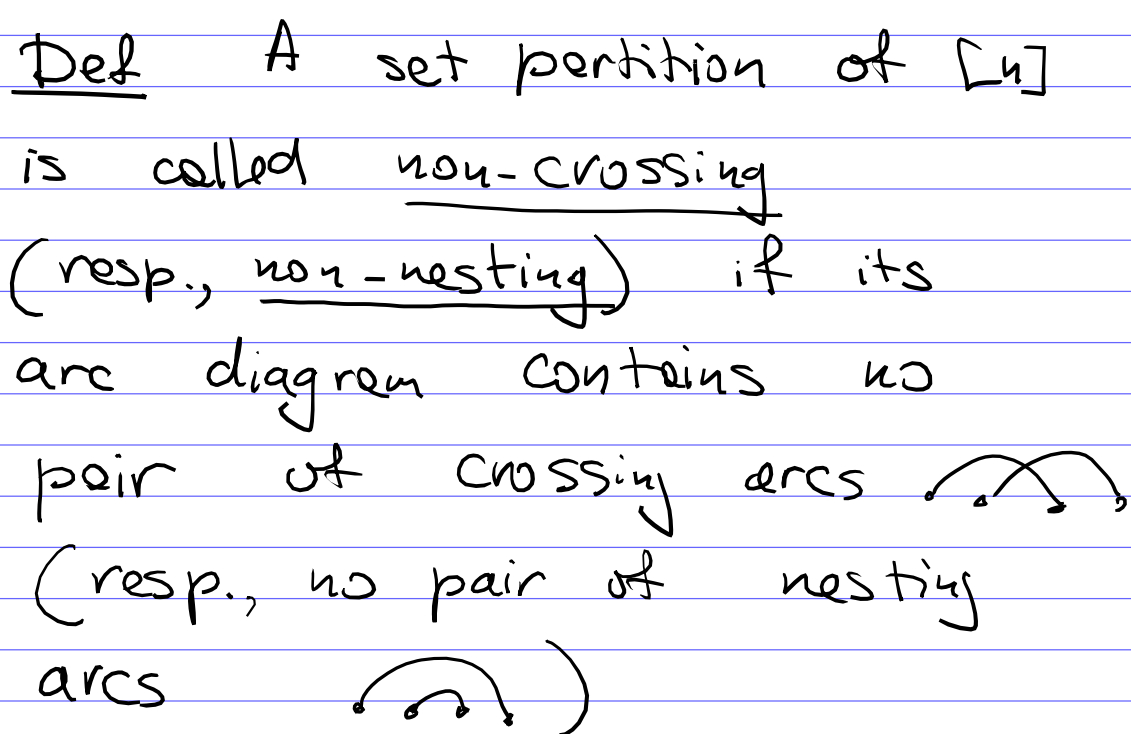 Def A set partition of [n]
is called non-crossing
(resp., non-nesting) if its
arc diagram contains no
pair of crossing arcs
(resp., no pair of nesting
arcs )